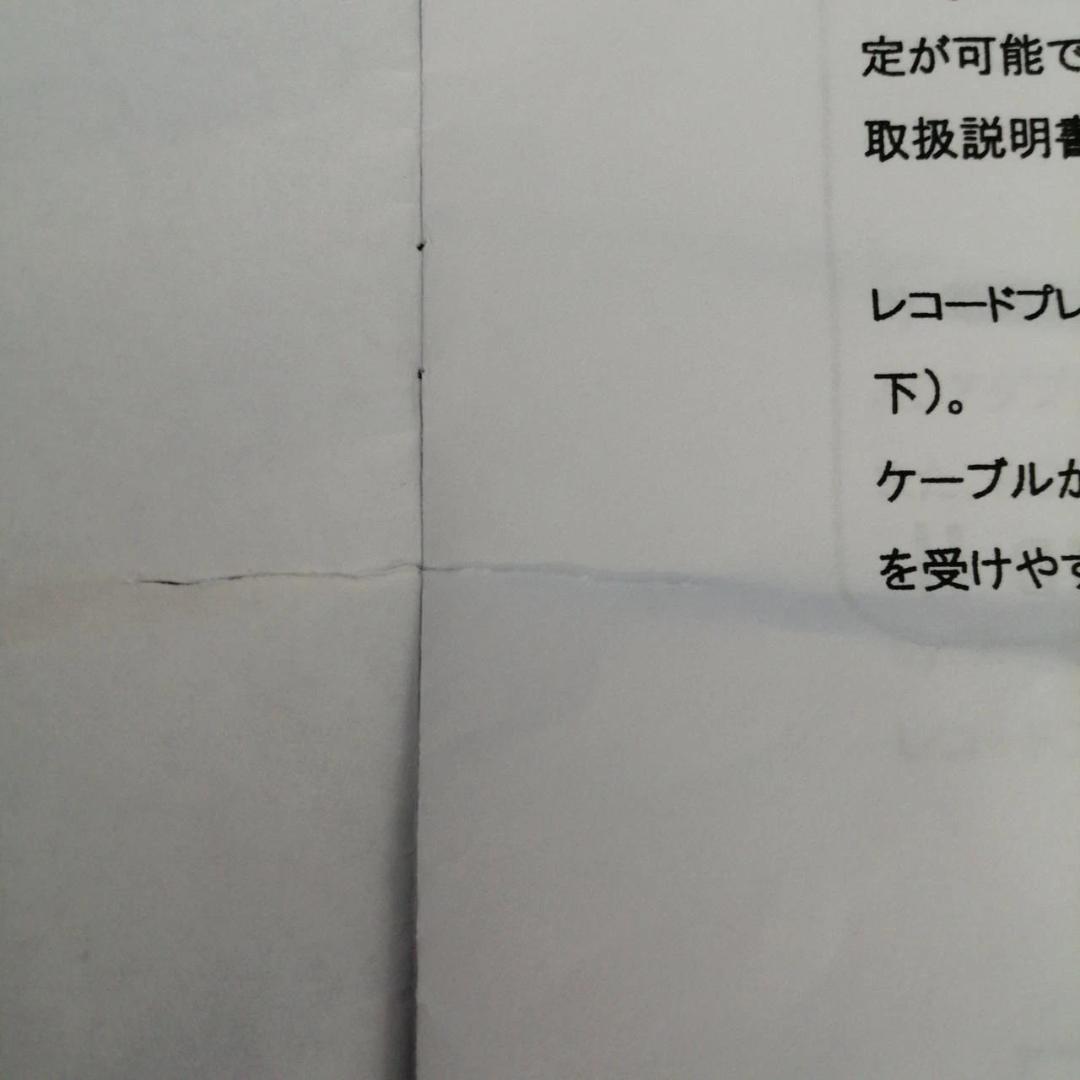 定が可能で
取扱説明書
レコードプレ
下）。
ケーブルか
を受けやす